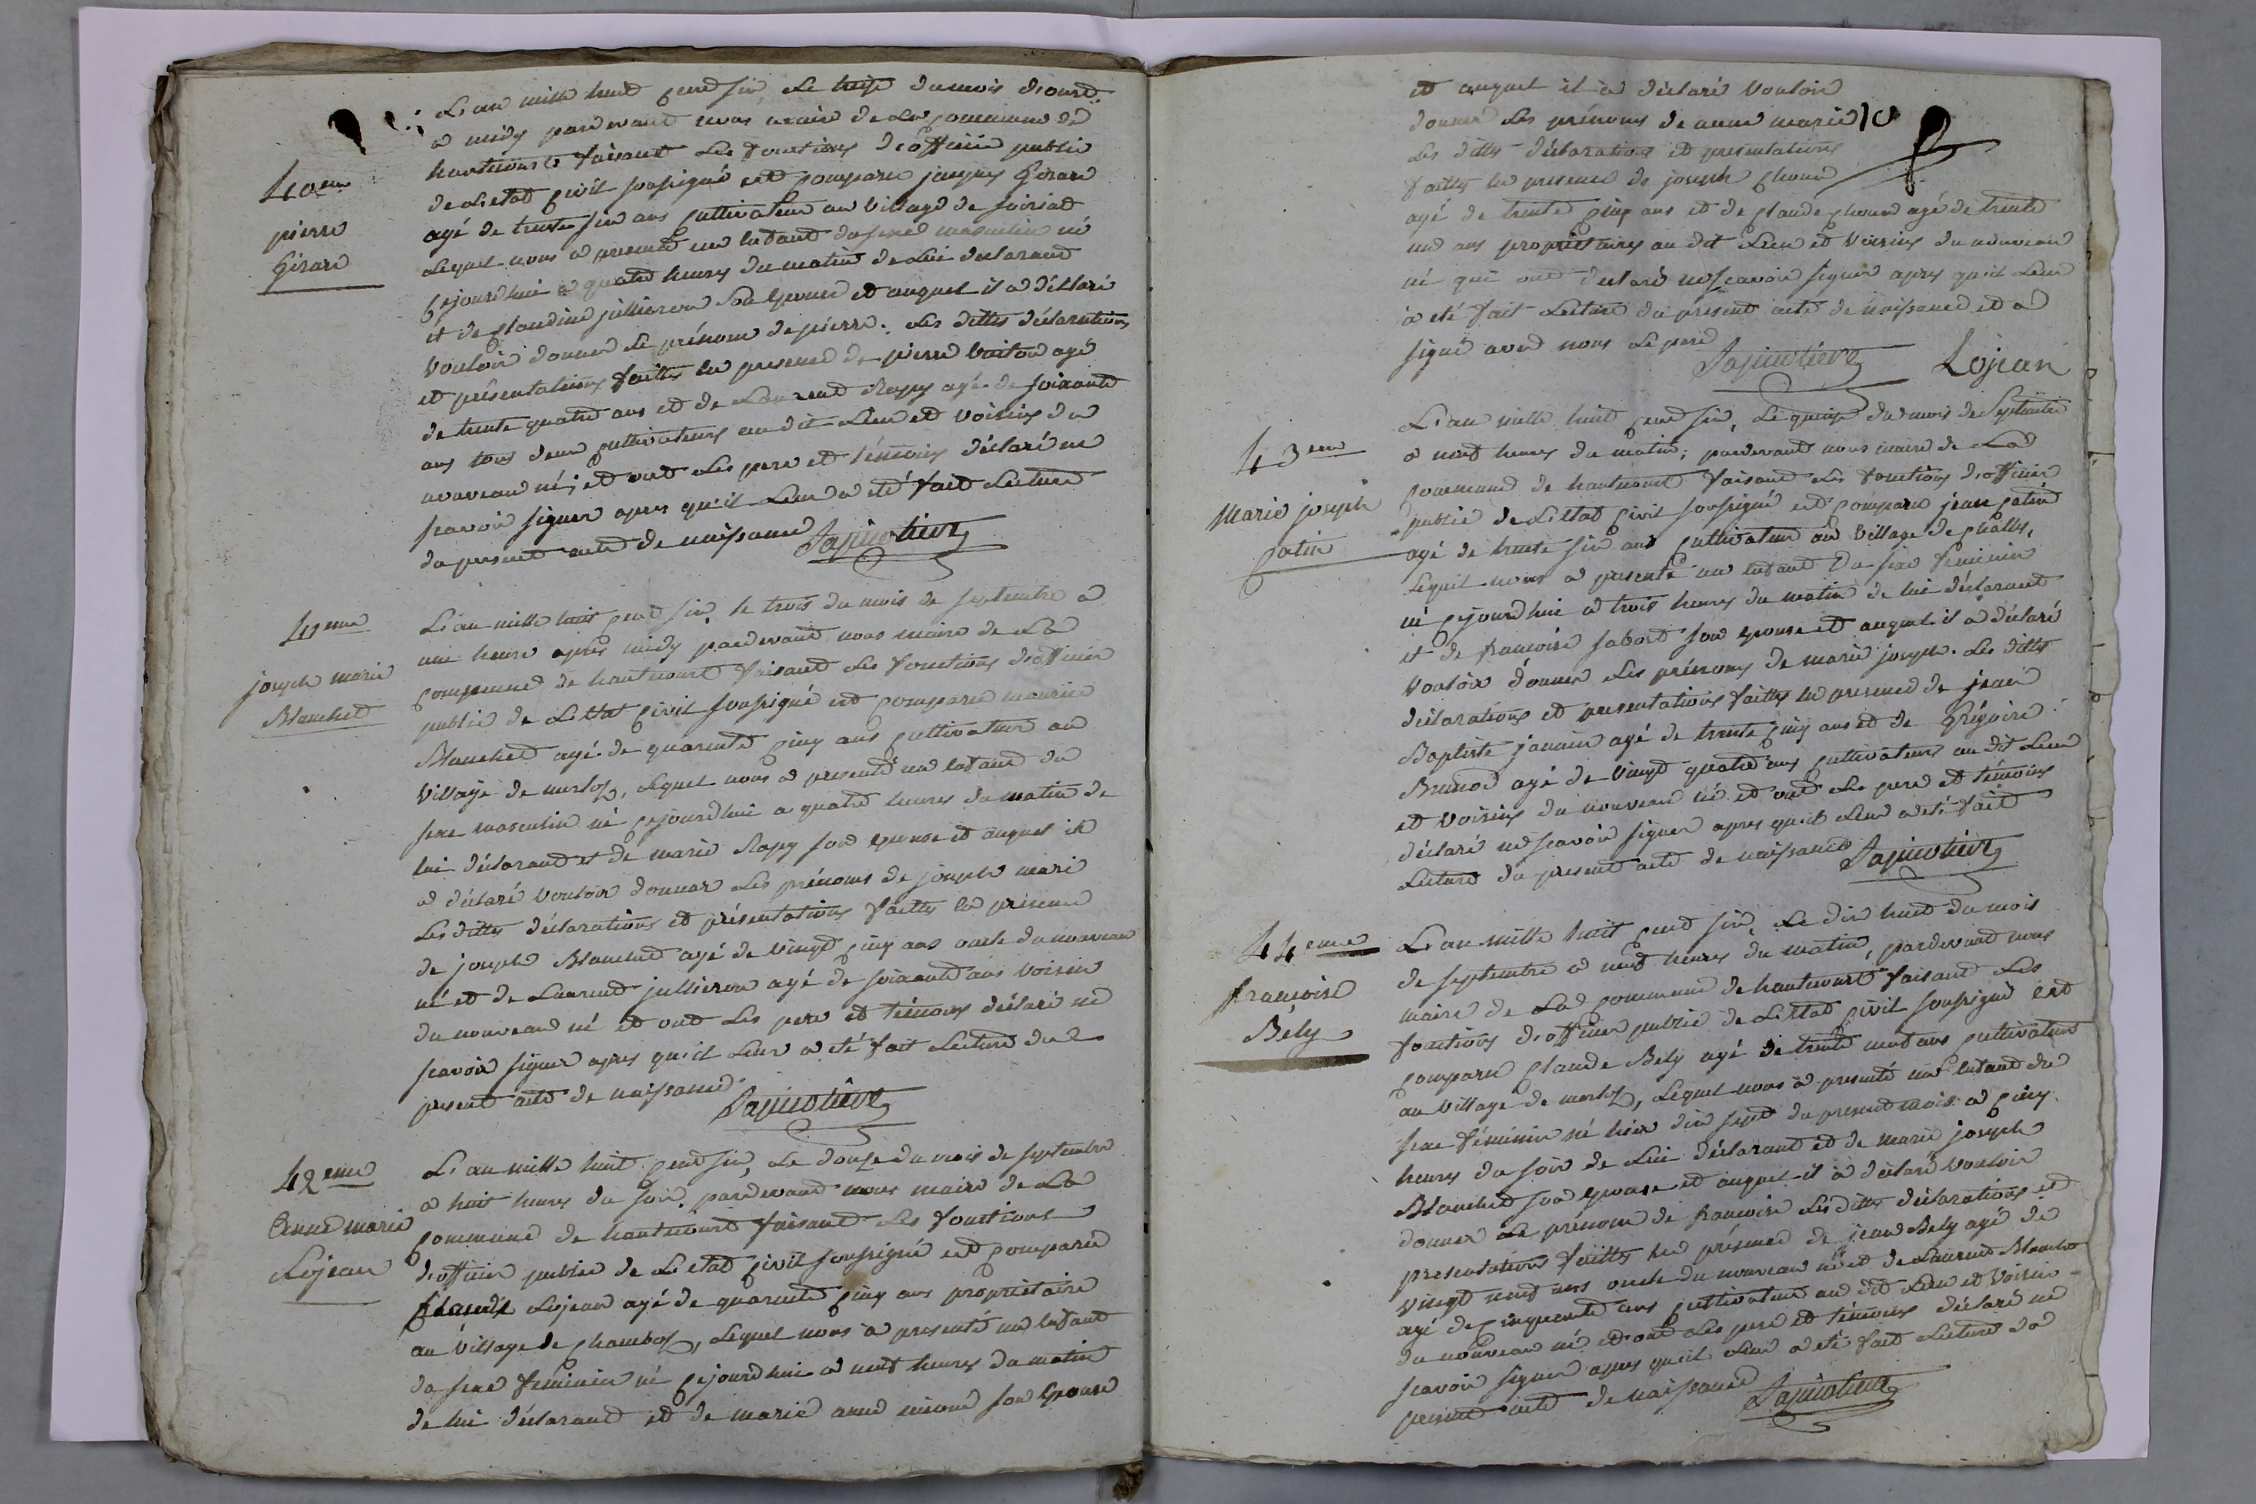 40eme
pierre
Girard
L'an mille huit cend six, Le treize du mois d'oust
a midy pardevant nous maire de La commune de
hautecourt faisant Les fonctions d'officier public
de L'etat civil soussigné est comparu jacques Girard
agé de trente six ans cultivateur au village de soiriat
Lequel nous a presenté un enfant du sexe masculin né
cejourdhui a quatre heures du matin de Lui declarant
et de Claudine jullieron son épouse et auquel il a déclaré
vouloir donner Le prénom de pierre. Les dittes déclarations
et présentations faittes en presence de pierre agé
de trente quatre ans et de Laurent Rapy agé de soixante
ans tous deux cultivateurs au dit Lieu et voisins du
nouveau né; et ont Les pere et témoins déclaré ne
scavoir signer apres qu'il Leur a eté fait Lecture
du present acte de naissance
41eme
joseph marie
Blanchet
L'an mille huit cend six, le trois du mois de septembre a
une heure après midy pardevant nous maire de La
commune de hautecourt faisant Les fonctions d'officier
public de L'ettat civil soussigné est comparu maurice
Blanchet agé de quarente cinq ans cultivateur au
village de merloz, Lequel nous a presenté un enfant du
sexe masculin né cejourdhui a quatre heures du matin de
lui déclarant et de marie Rapy son épouse et auquel il
a déclaré vouloir donner Les prénoms de joseph marie
Les dittes déclarations et présentations faittes en presence
de joseph Blanchet agé de vingt cinq ans oncle du nouveau
né et de Laurent jullieron agé de soixante ans voisin
du nouveau né et ont Les pere et témoins déclaré ne
scavoir signer apres qu'il Leur a eté fait Lecture du
present acte de naissance
42eme
Anne marie
Lojean
L'an mille huit cend six, Le douze du mois de septembre
a huit heures du soir, pardevant nous maire de La
commune de hautecourt faisant Les fonctions
d'officier public de L'etat civil soussigné est comparu
Claude Lojean agé de quarente cinq ans propriétaire
au village de chamboz, Lequel nous a presenté un enfant
du sexe feminin né cejourdhui a neuf heures du matin
de lui déclarant et de marie anne son épouse
et auquel il a déclaré vouloir
donner Les prénoms de anne marie
Les dittes déclarations et presentations
faittes en presence de joseph
agé de trente cinq ans et de Claude agé de trente
un ans propriétaires au dit Lieu et voisins du nouveau
né qui ont déclaré ne scavoir signer apres qu'il Leur
a eté fait Lecture du présent acte de naissance et a
signé avec nous Le pere
Lojean
43eme
Marie joseph
Catin
L'an mille huit cend six, Le quinze du mois de Septembre
a neuf heures du matin, pardevant nous maire de La
commune de hautecourt faisant Les fonctions d'officier
public de L'ettat civil soussigné est comparu jean catin
agé de trente six ans cultivateur au village de challes,
Lequel nous a presenté un enfant du sexe feminin
né cejourdhui a trois heures du matin de lui déclarant
et de francoise sabot son épouse et auquel il a déclaré
vouloir donner Les prénoms de marie joseph. Les dittes
déclarations et presentations faittes en presence de jean
Baptiste janain agé de trente cinq ans et de Grégoire
Brunod agé de vingt quatre ans cultivateurs au dit Lieu
et voisins du nouveau né et ont Les pere et témoins
déclaré ne scavoir signer apres qu'il Leur a eté fait
Lecture du present acte de naissance
44eme
francoise
Bély
L'an mille huit cend six, Le dix huit du mois
de septembre a neuf heures du matin, pardevant nous
maire de La commune de hautecourt faisant Les
fonctions d'officier public de L'ettat civil soussigné est
comparu Claude Bely agé de trente neuf ans cultivateur
au village de merloz, Lequel nous a presenté un enfant du
sexe féminin né hier dix sept du present mois a cinq
heures du soir de Lui déclarant et de marie joseph
Blanchet son épouse et auquel il a déclaré vouloir
donner Le prénom de francoise Les dittes déclarations et
presentations faittes en présence de jean Bely agé de
vingt neuf ans oncle du nouveau né et de Laurent Blanchet
agé de cinquente ans cultivateur au dit Lieu et voisin
du nouveau né et ont Les pere et témoins déclaré ne
scavoir signer apres qu'il Leur a eté fait Lecture du
present acte de naissance